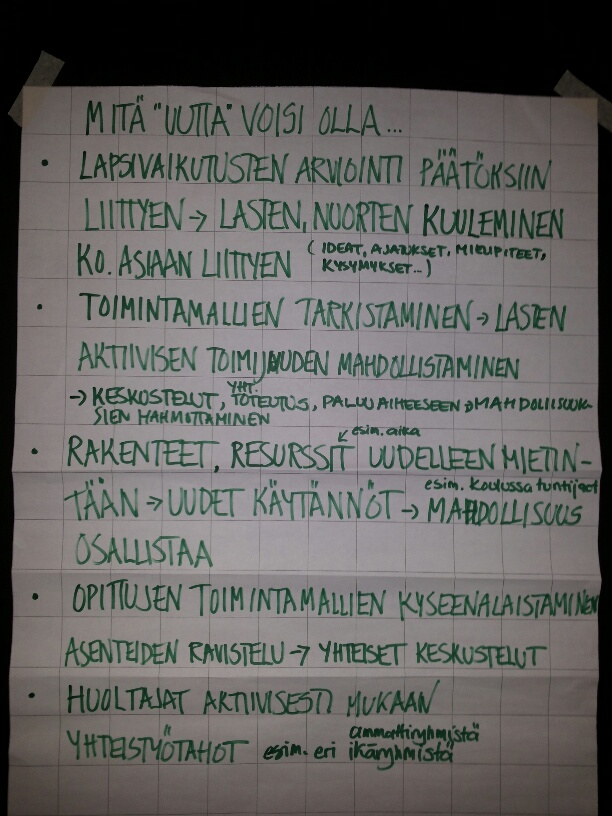 MITÄ "UUTTA" VOISI OLLA...
• LAPSIVAIKUTUSTEN ARVIOINTI PÄÄTÖKSIIN
LIITTYEN → LASTEN, NUORTEN KUULEMINEN
KO. ASIAAN LIITTYEN (IDEAT, AJATUKSET, MIELIPITEET,
KYSYMYKSET...)
• TOIMINTAMALLIEN TARKISTAMINEN → LASTEN
AKTIIVISEN TOIMIJUUDEN MAHDOLLISTAMINEN
→ KESKUSTELUT, YHT. TOTEUTUS, PALUU AIHEESEEN → MAHDOLLISUUK-
SIEN HAHMOTTAMINEN
esim. aika
• RAKENTEET, RESURSSIT UUDELLEEN MIETIN-
esim. koulussa tuntijaot
TÄÄN → UUDET KÄYTÄNNÖT → MAHDOLLISUUS
OSALLISTAA
• OPITTUJEN TOIMINTAMALLIEN KYSEENALAISTAMINEN
ASENTEIDEN RAVISTELU → YHTEISET KESKUSTELUT
• HUOLTAJAT AKTIIVISESTI MUKAAN
ammattiryhmistä
YHTEISTYÖTAHOT esim. eri ikäryhmistä